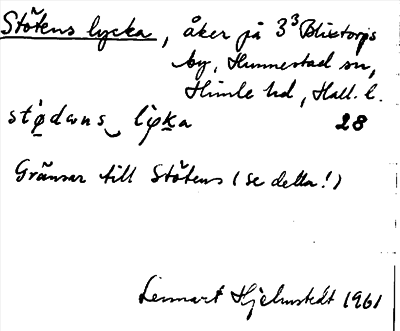 Stötens lycka, åker på 3³ Blixtorps
by, Hunnestad sn,
Himle hd, Hall. l.
stø̀dans‿ lỳka 28
Gränsar till Stötens (se detta!)
Lennart Hjelmstedt 1961